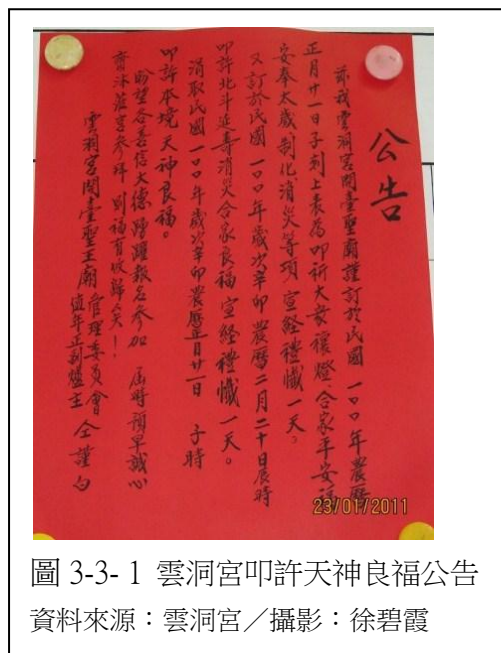 公告
茲我雲洞宮開臺聖廟謹訂於民國一○○年農曆
正月廿一日子刻上表為叩祈大眾禳燈、合家平安
安奉太歲、制化消災等項宣経禮懺一天。
又訂於民國一○○年歲次辛卯農曆二月二十日辰時
叩許北斗延壽消災合家良福宣経禮懺一天。
涓取民國一○○年歲次辛卯農曆正月廿一日子時
叩許本境天神良福。
盼望各善信大德踴躍報名參加屆時預早誠心
齋沐蒞宮參拜則福有攸歸矣!
雲洞宮開臺聖王廟管理委員會
值年正副爐主仝謹白
23/01/2011
圖 3-3- 1 雲洞宮叩許天神良福公告
資料來源：雲洞宮／攝影：徐碧霞